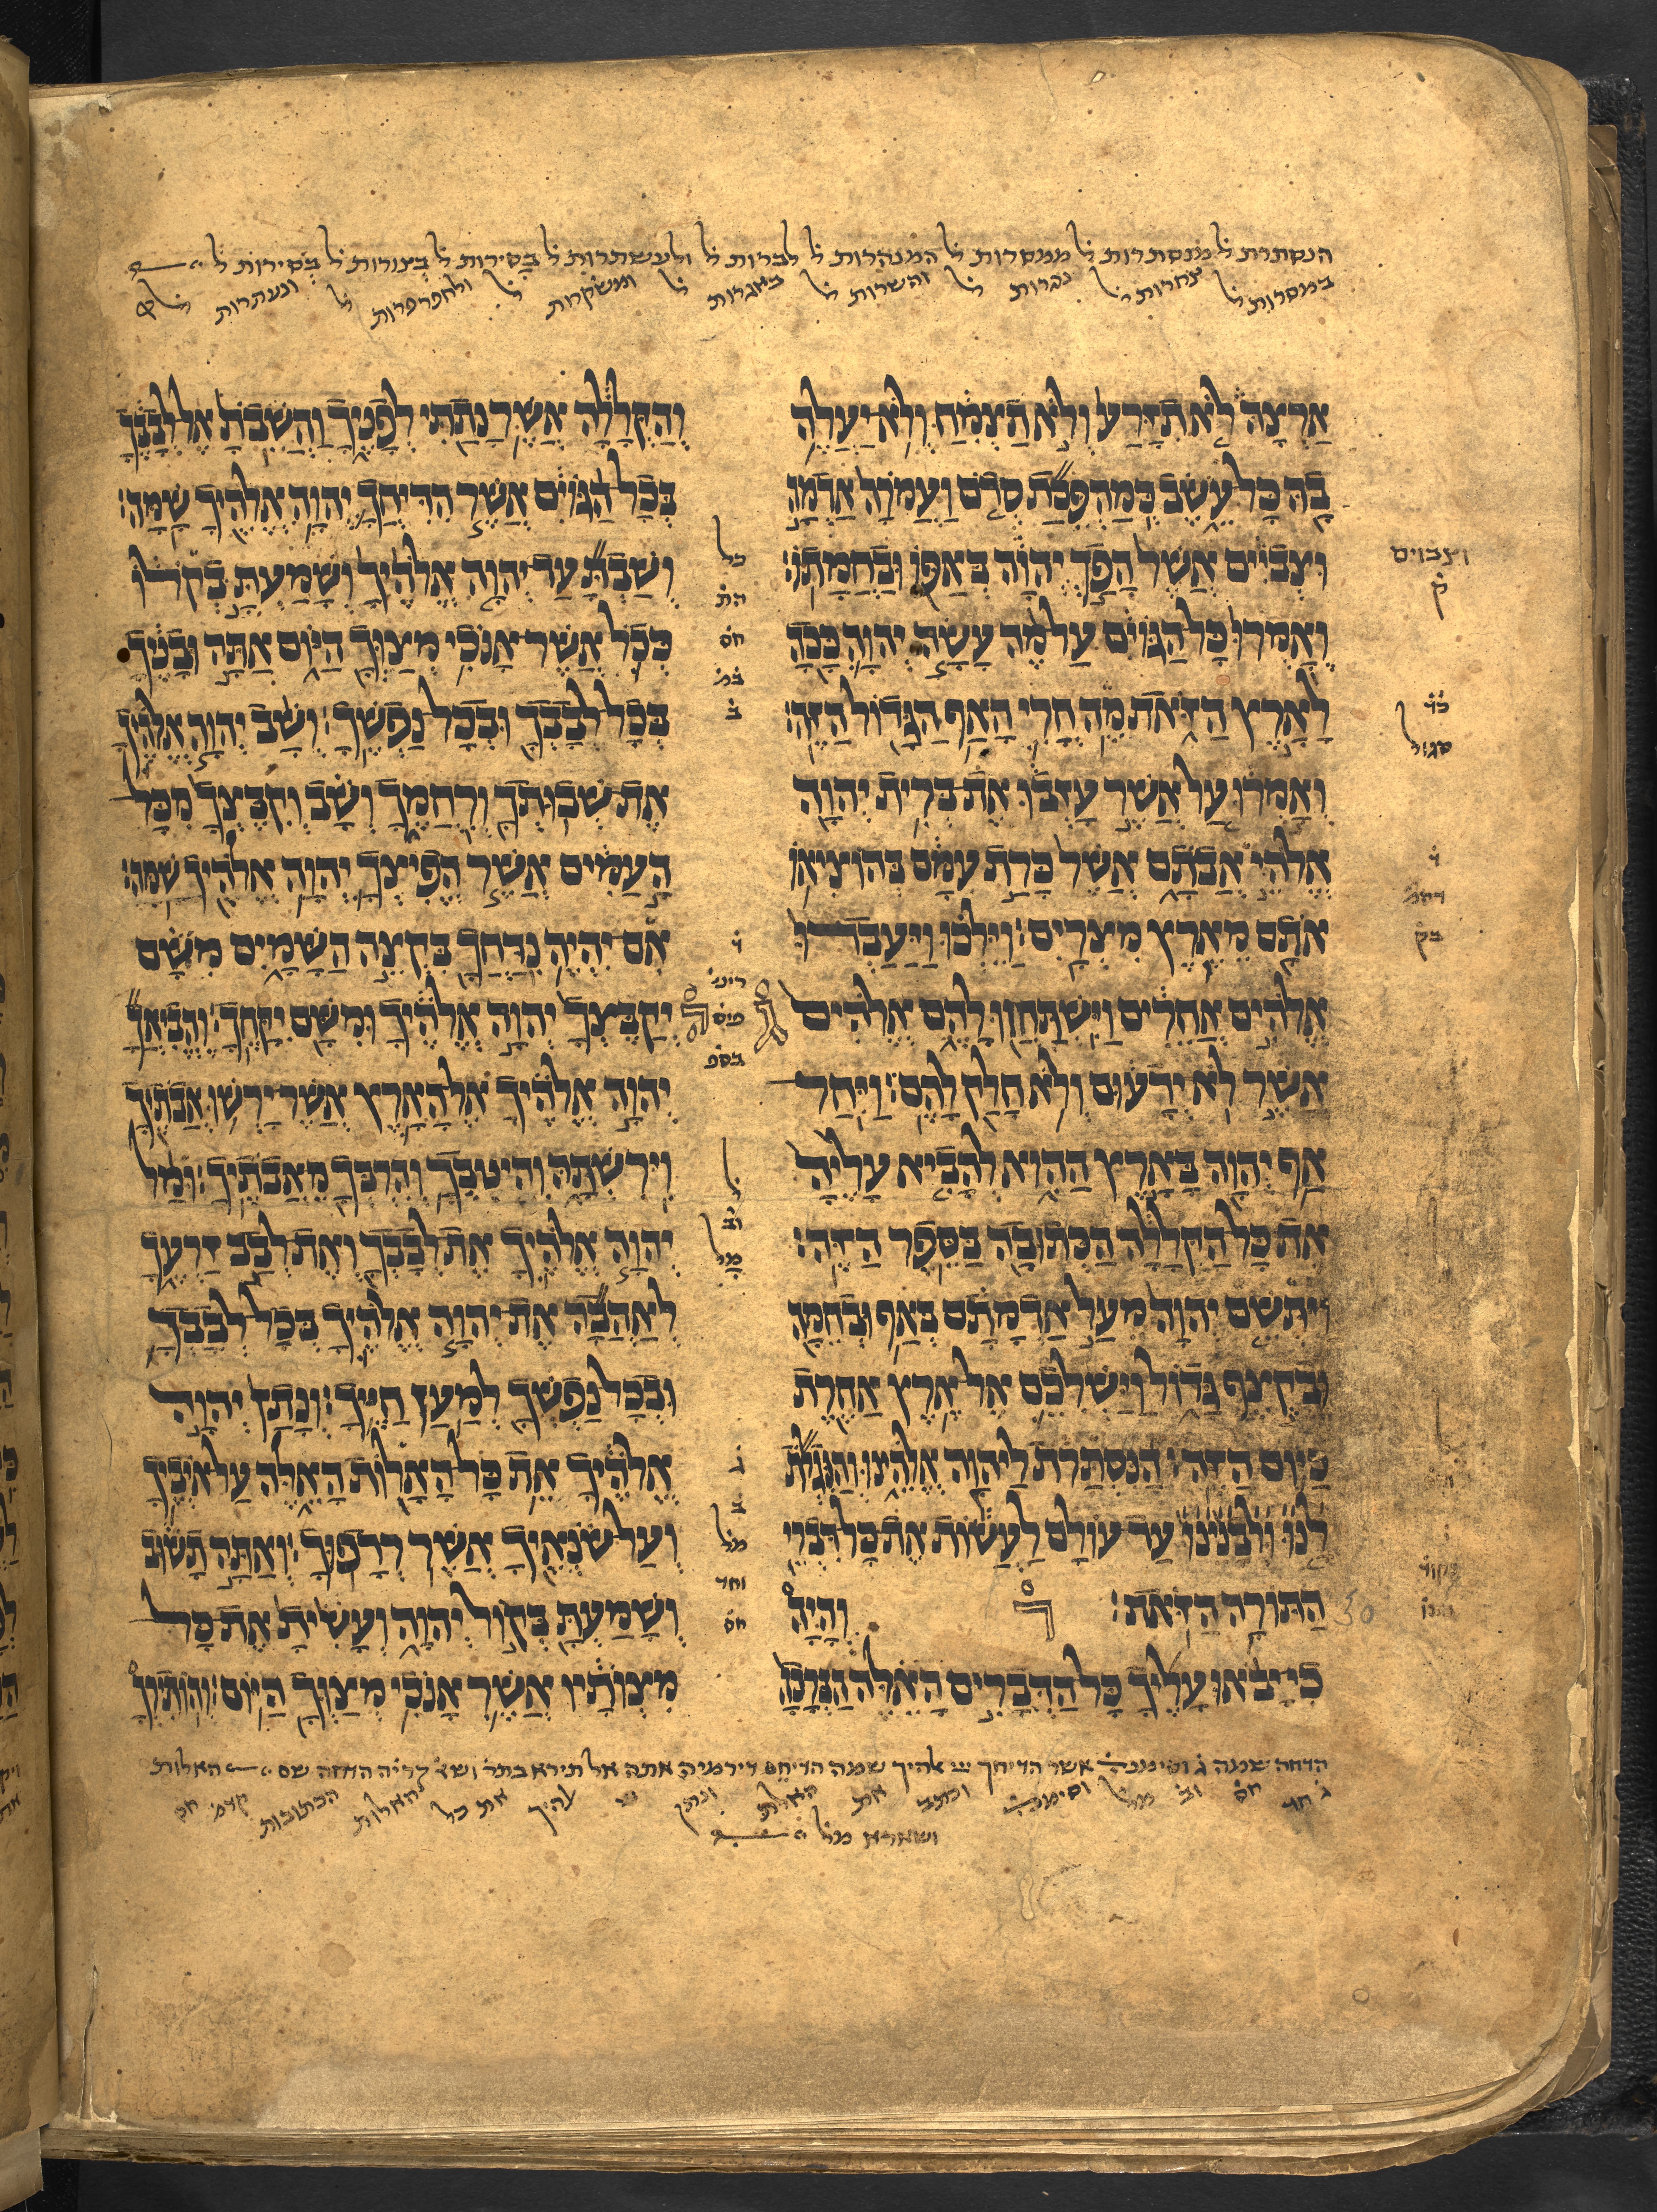 הנסתרת ל מנסתרות ל ממסרות ל המנהרות ל לברות ל ולעשתרות ל בסירות ל בצורות ל בסירות ל
במסרות ל צחרות ל גברות ל והשרות ל באגרות ל ומשקרות ל ולחפרפרות ל ונעתרות ל
אַרְצָהּ לֹא תִזָּרַע וְלֹא תַצְמִחַ וְלֹא יַעֲלֶה
בָהּ כָּל עֵשֶׂב כְּמַהְפֵּכַת סְדֹם וַעֲמֹרָה אַדְמָה
וּצְבֹיִים אֲשֶׁר הָפַךְ יְהוָה בְּאַפּוֹ וּבַחֲמָתוֹ׃
וְאָמְרוּ כָּל הַגּוֹיִם עַל מֶה עָשָׂה יְהוָה כָּכָה
לָאָרֶץ הַזֹּאת מֶה חֳרִי הָאַף הַגָּדוֹל הַזֶּה׃
וְאָמְרוּ עַל אֲשֶׁר עָזְבוּ אֶת בְּרִית יְהוָה
אֱלֹהֵי אֲבֹתָם אֲשֶׁר כָּרַת עִמָּם בְּהוֹצִיאוֹ
אֹתָם מֵאֶרֶץ מִצְרָיִם׃ וַיֵּלְכוּ וַיַּעַבְדוּ
אֱלֹהִים אֲחֵרִים וַיִּשְׁתַּחֲווּ לָהֶם אֱלֹהִים
אֲשֶׁר לֹא יְדָעוּם וְלֹא חָלַק לָהֶם׃ וַיִּחַר
אַף יְהוָה בָּאָרֶץ הַהִוא לְהָבִיא עָלֶיהָ
אֶת כָּל הַקְּלָלָה הַכְּתוּבָה בַּסֵּפֶר הַזֶּה׃
וַיִּתְּשֵׁם יְהוָה מֵעַל אַדְמָתָם בְּאַף וּבְחֵמָה
וּבְקֶצֶף גָּדוֹל וַיַּשְׁלִכֵם אֶל אֶרֶץ אַחֶרֶת
כַּיּוֹם הַזֶּה׃ הַנִּסְתָּרֹת לַיהוָה אֱלֹהֵינוּ וְהַנִּגְלֹת
לָנוּ וּלְבָנֵינוּ עַד עוֹלָם לַעֲשׂוֹת אֶת כָּל דִּבְרֵי
הַתּוֹרָה הַזֹּאת׃ וְהָיָה
כִי יָבֹאוּ עָלֶיךָ כָּל הַדְּבָרִים הָאֵלֶּה הַבְּרָכָה
וְהַקְּלָלָה אֲשֶׁר נָתַתִּי לְפָנֶיךָ וַהֲשֵׁבֹתָ אֶל לְבָבֶךָ
בְּכָל הַגּוֹיִם אֲשֶׁר הִדִּיחֲךָ יְהוָה אֱלֹהֶיךָ שָׁמָּה׃
וְשַׁבְתָּ עַד יְהוָה אֱלֹהֶיךָ וְשָׁמַעְתָּ בְקֹלוֹ
כְּכֹל אֲשֶׁר אָנֹכִי מְצַוְּךָ הַיּוֹם אַתָּה וּבָנֶיךָ
בְּכָל לְבָבְךָ וּבְכָל נַפְשֶׁךָ׃ וְשָׁב יְהוָה אֱלֹהֶיךָ
אֶת שְׁבוּתְךָ וְרִחֲמֶךָ וְשָׁב וְקִבֶּצְךָ מִכָּל
הָעַמִּים אֲשֶׁר הֱפִיצְךָ יְהוָה אֱלֹהֶיךָ שָׁמָּה׃
אִם יִהְיֶה נִדַּחֲךָ בִּקְצֵה הַשָּׁמָיִם מִשָּׁם
יְקַבֶּצְךָ יְהוָה אֱלֹהֶיךָ וּמִשָּׁם יִקָּחֶךָ׃ וֶהֱבִיאֲךָ
יְהוָה אֱלֹהֶיךָ אֶל הָאָרֶץ אֲשֶׁר יָרְשׁוּ אֲבֹתֶיךָ
וִירִשְׁתָּהּ וְהֵיטִבְךָ וְהִרְבְּךָ מֵאֲבֹתֶיךָ׃ וּמָל
יְהוָה אֱלֹהֶיךָ אֶת לְבָבְךָ וְאֶת לְבַב זַרְעֶךָ
לְאַהֲבָה אֶת יְהוָה אֱלֹהֶיךָ בְּכָל לְבָבְךָ
וּבְכָל נַפְשְׁךָ לְמַעַן חַיֶּיךָ׃ וְנָתַן יְהוָה
אֱלֹהֶיךָ אֵת כָּל הָאָלוֹת הָאֵלֶּה עַל אֹיְבֶיךָ
וְעַל שֹׂנְאֶיךָ אֲשֶׁר רְדָפוּךָ׃ וְאַתָּה תָשׁוּב
וְשָׁמַעְתָּ בְּקוֹל יְהוָה וְעָשִׂיתָ אֶת כָּל
מִצְוֺתָיו אֲשֶׁר אָנֹכִי מְצַוְּךָ הַיּוֹם׃ וְהוֹתִירְךָ
וצבוים
ק
סגול
כל
חס
ב
מל
וחד
חס
30
הדחה שמה ג וסימנה אשר הדיחך יי אלהיך שמה הדיחם דירמיה אתה אל תירא בתר האלות
ג חד חס וב מל וסימנה וכתב את האלת ונתן יי אלהיך את כל האלות הכתובות קדמ חס
ושארא מל